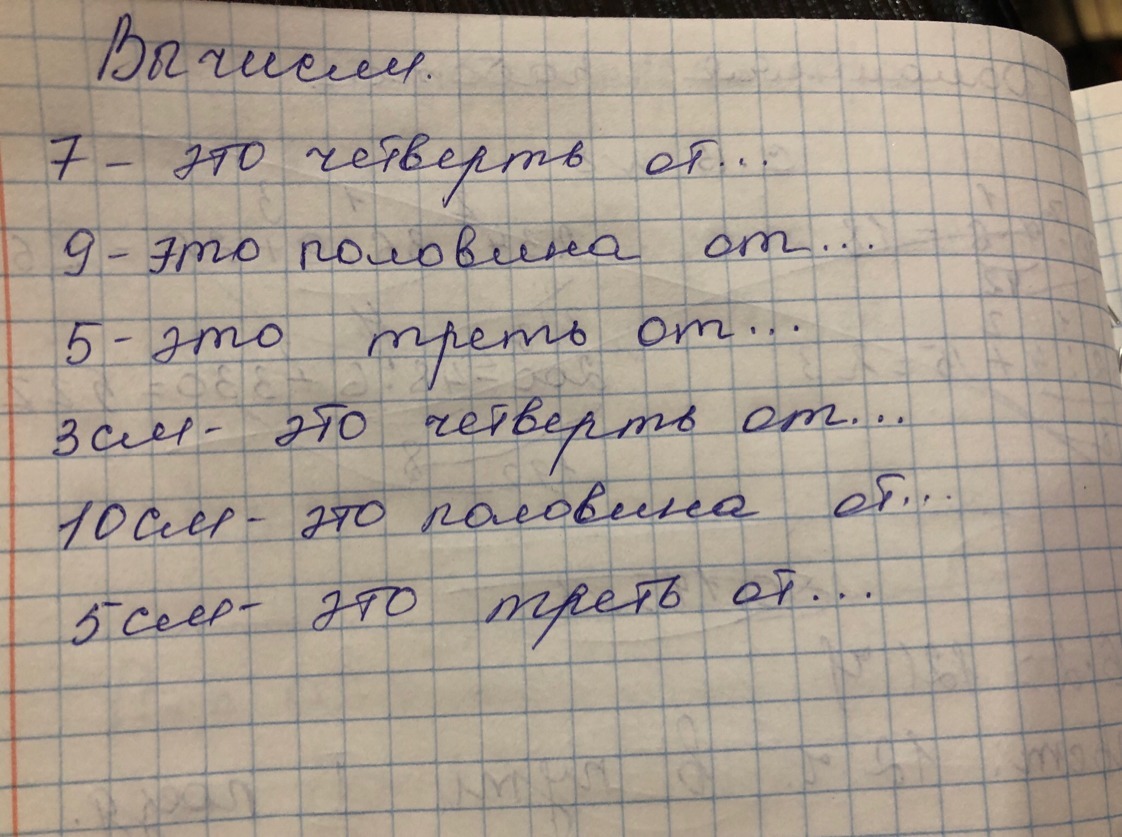 Вычисли.
7 - это четверть от...
9 - это половина от...
5 - это треть от...
3 см - это четверть от...
10 см - это половина от...
5 см - это треть от...